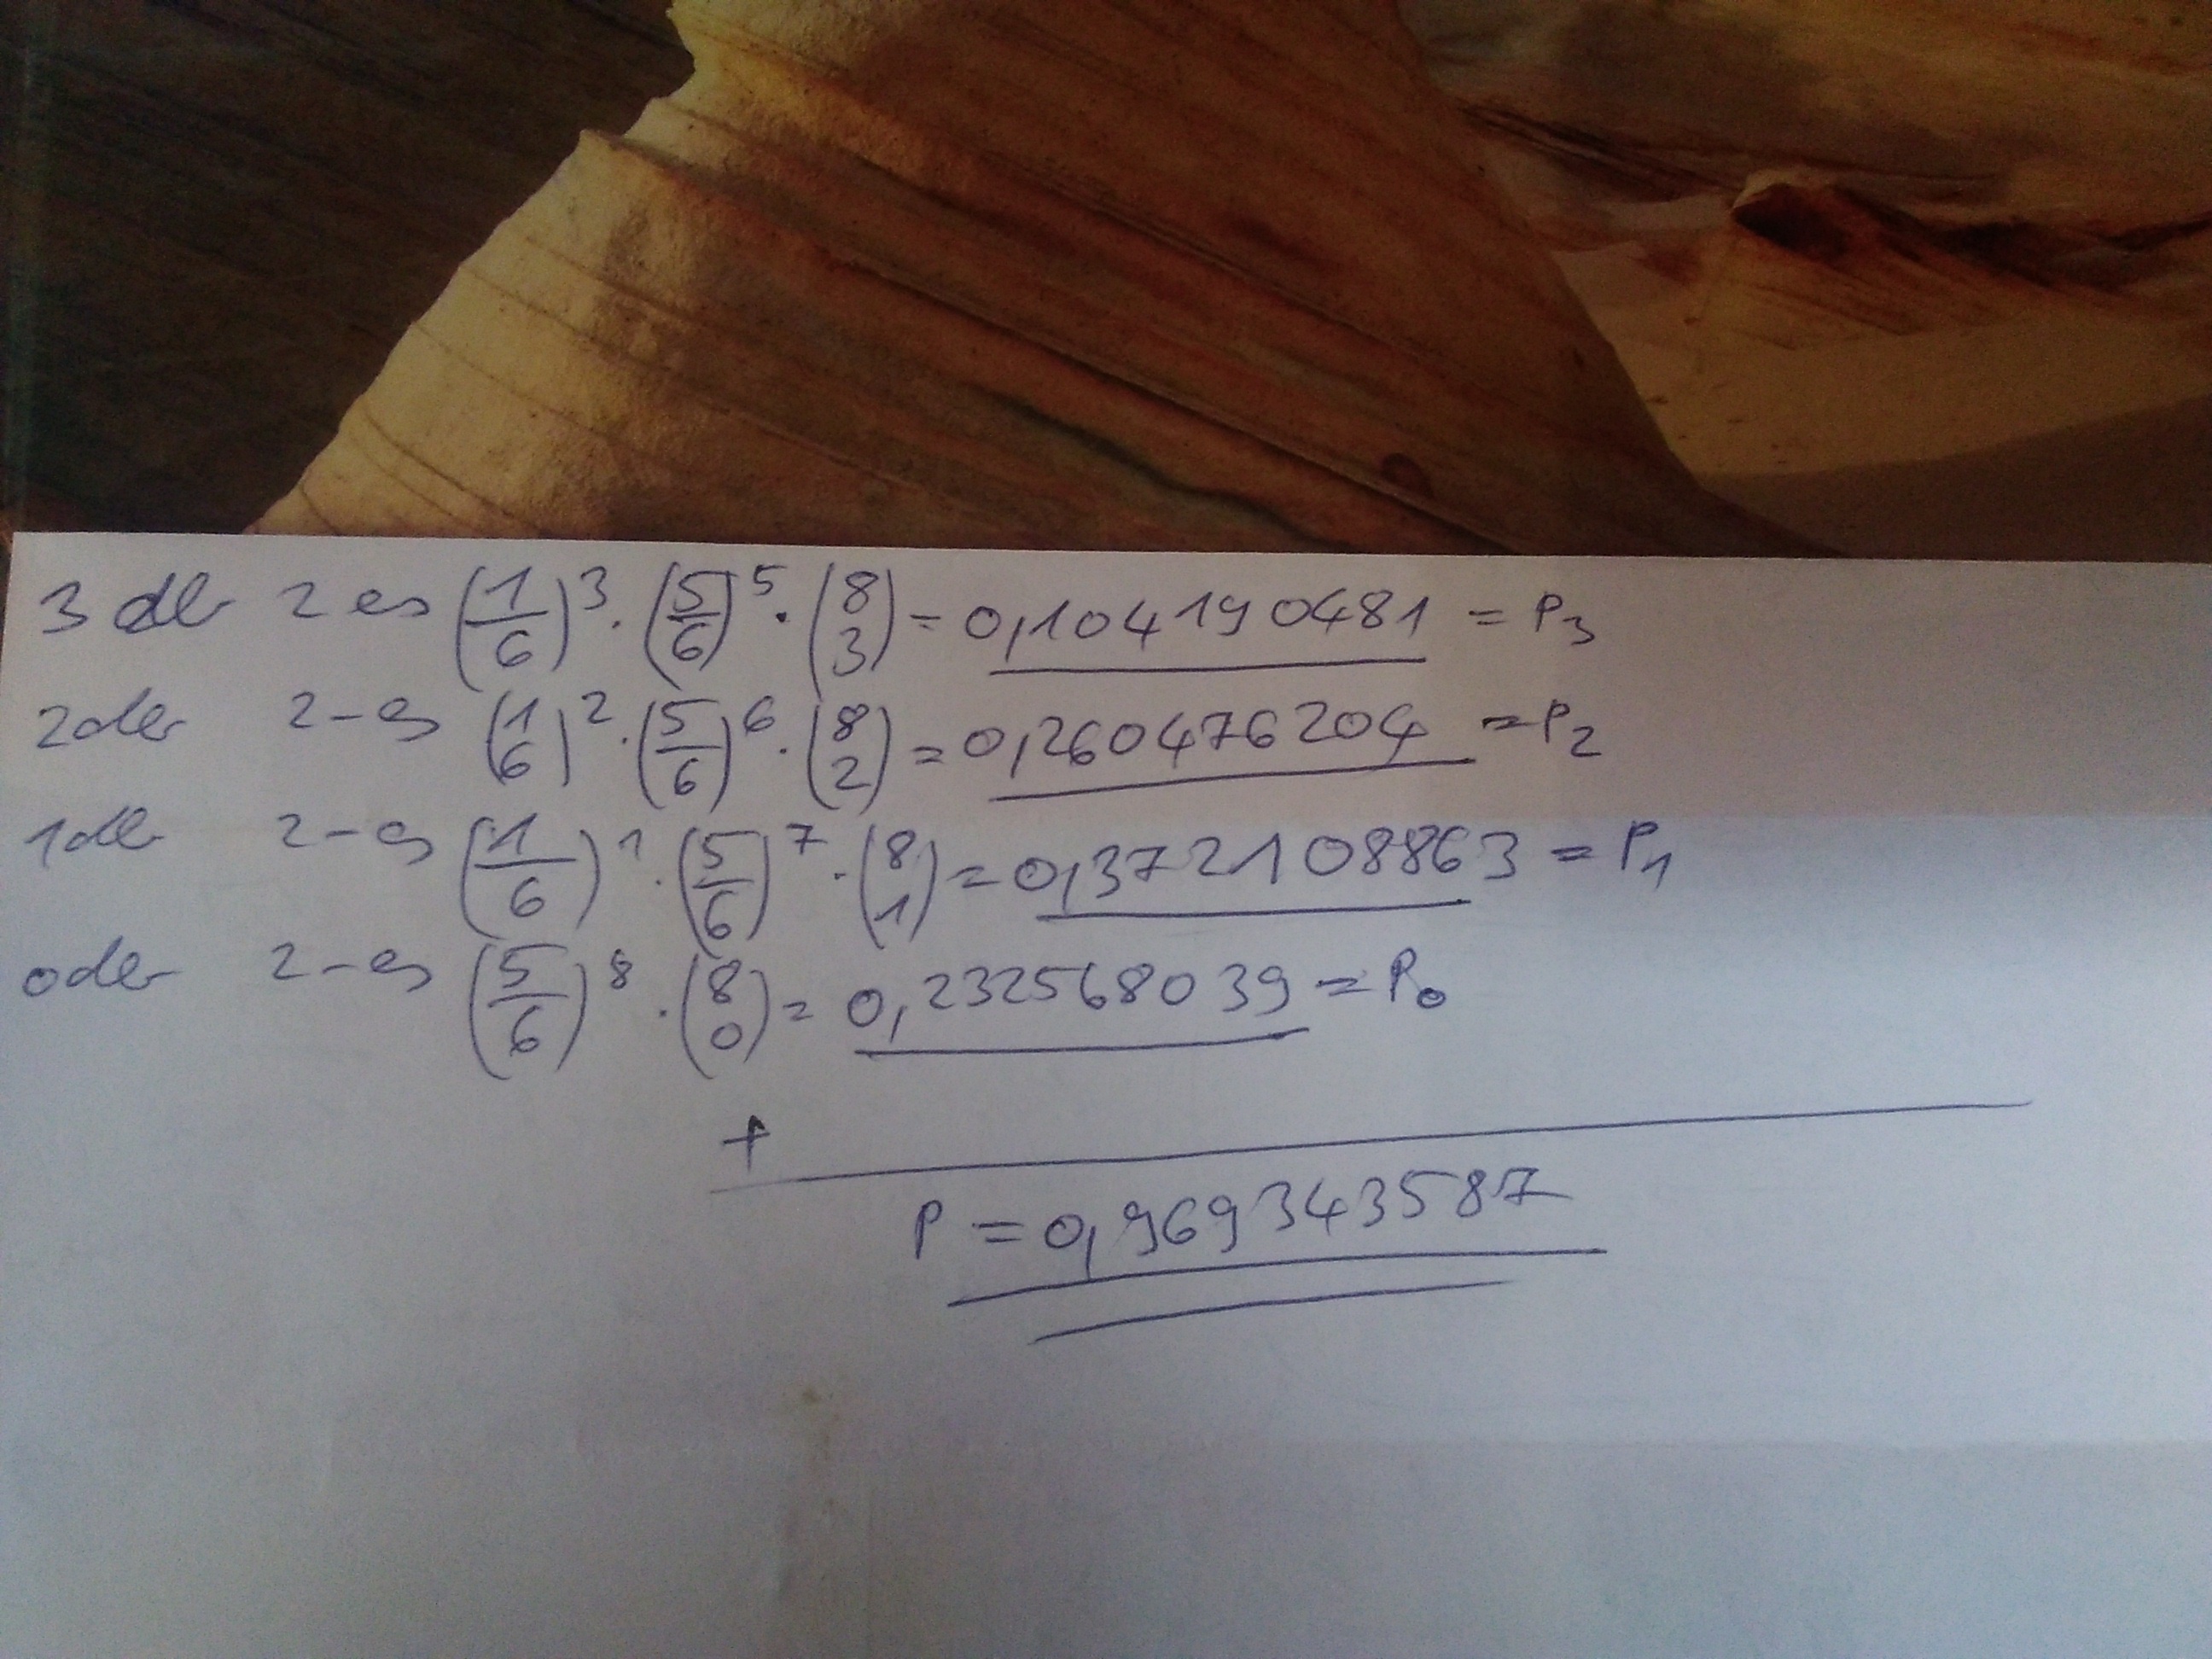 3 db 2 es (1/6)^3 · (5/6)^5 · (8 3) = 0,104190481 = P3
2 db 2-es (1/6)^2 · (5/6)^6 · (8 2) = 0,260476204 = P2
1 db 2-es (1/6)^1 · (5/6)^7 · (8 1) = 0,3721108863 = P1
0 db 2-es (5/6)^8 · (8 0) = 0,232568039 = P0
+
P = 0,969343587